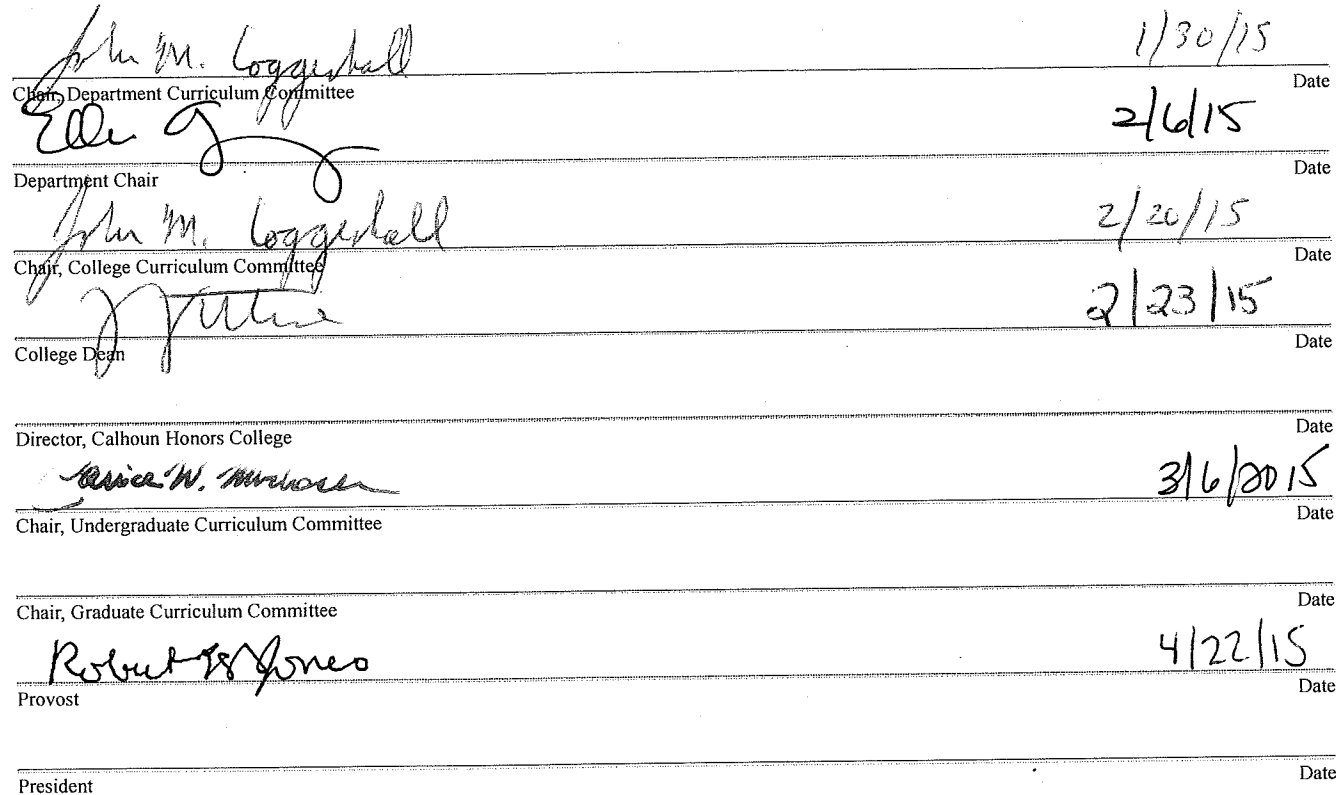 John M. Coggeshall 1/30/15
Chair, Department Curriculum Committee Date
2/6/15
Department Chair Date
John M. Coggeshall 2/20/15
Chair, College Curriculum Committee Date
2/23/15
College Dean Date
Director, Calhoun Honors College Date
W. 3/6/2015
Chair, Undergraduate Curriculum Committee Date
Chair, Graduate Curriculum Committee Date
Robert Jones 4/22/15
Provost Date
President Date